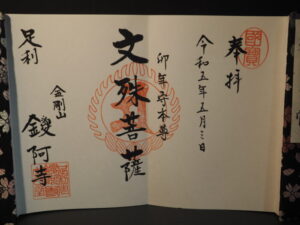 奉拝
令和五年五月三日
卯年守本尊
文殊菩薩
金剛山
鑁阿寺
足利